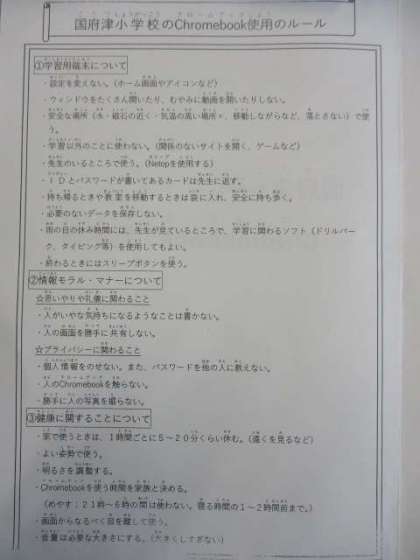 国府津小学校のChromebook使用のルール
①学習用端末について
・設定を変えない。(ホーム画面やアイコンなど)
・ウィンドウをたくさん開いたり、むやみに動画を開いたりしない。
・安全な場所(水・磁石の近く・気温の高い場所×、移動しながらなど、落とさない)で使
う。
・学習以外のことに使わない。(関係のないサイトを開く、ゲームなど)
・先生のいるところで使う。(Netopを使用する)
・IDとパスワードが書いてあるカードは先生に返す。
・持ち帰るときや教室を移動するときは袋に入れ、安全に持ち歩く。
・必要のないデータを保存しない。
・雨の日の休み時間には、先生が見ているところで、学習に関わるソフト(ドリルパー
ク、タイピング等)を使用してもよい。
・終わるときにはスリープボタンを使う。
②情報モラル・マナーについて
☆思いやりや礼儀に関わること
・人がいやな気持ちになるようなことは書かない。
・人の画面を勝手に共有しない。
☆プライバシーに関わること
・個人情報をのせない。また、パスワードを他の人に教えない。
・人のChromebookを触らない。
・勝手に人の写真を撮らない。
③健康に関することについて
・家で使うときは、1時間ごとに5~20分くらい休む。(遠くを見るなど)
・よい姿勢で使う。
・明るさを調整する。
・Chromebookを使う時間を家族と決める。
(めやす:21時~6時の間は使わない。寝る時間の1~2時間前まで。)
・画面からなるべく目を離して使う。
・音量は必要な大きさにする。(大きくしすぎない)